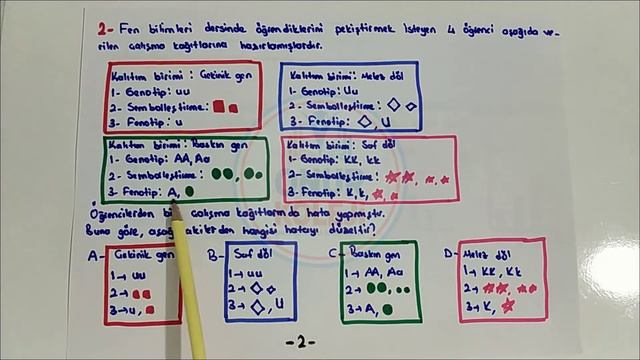 2- Fen bilimleri dersinde öğrendiklerini pekiştirmek isteyen 4 öğrenci aşağıda ve-
rilen çalışma kağıtlarına hazırlamışlardır.
Kalıtım birimi : Çekinik gen
1- Genotip: uu
2- Sembolleştirme:
3- Fenotip: u
Kalıtım birimi: Melez döl
1- Genotip: Uu
2- Sembolleştirme:
3- Fenotip: , U
Kalıtım birimi: Baskın gen
1- Genotip: AA, Aa
2- Sembolleştirme: ,
3- Fenotip: A,
Kalıtım birimi: Saf döl
1- Genotip: KK, kk
2- Sembolleştirme: ,
3- Fenotip: K, k,
Öğrencilerden biri çalışma kağıtlarında hata yapmıştır.
Buna göre, aşağıdakilerden hangisi hatayı düzeltir?
A- Çekinik gen
1→ uu
2→
3→ u,
B- Saf döl
1→ uu
2→
3→ , U
C- Baskın gen
1→ AA, Aa
2→ ,
3→ A,
D- Melez döl
1→ KK, Kk
2→ ,
3→ K,
-2-